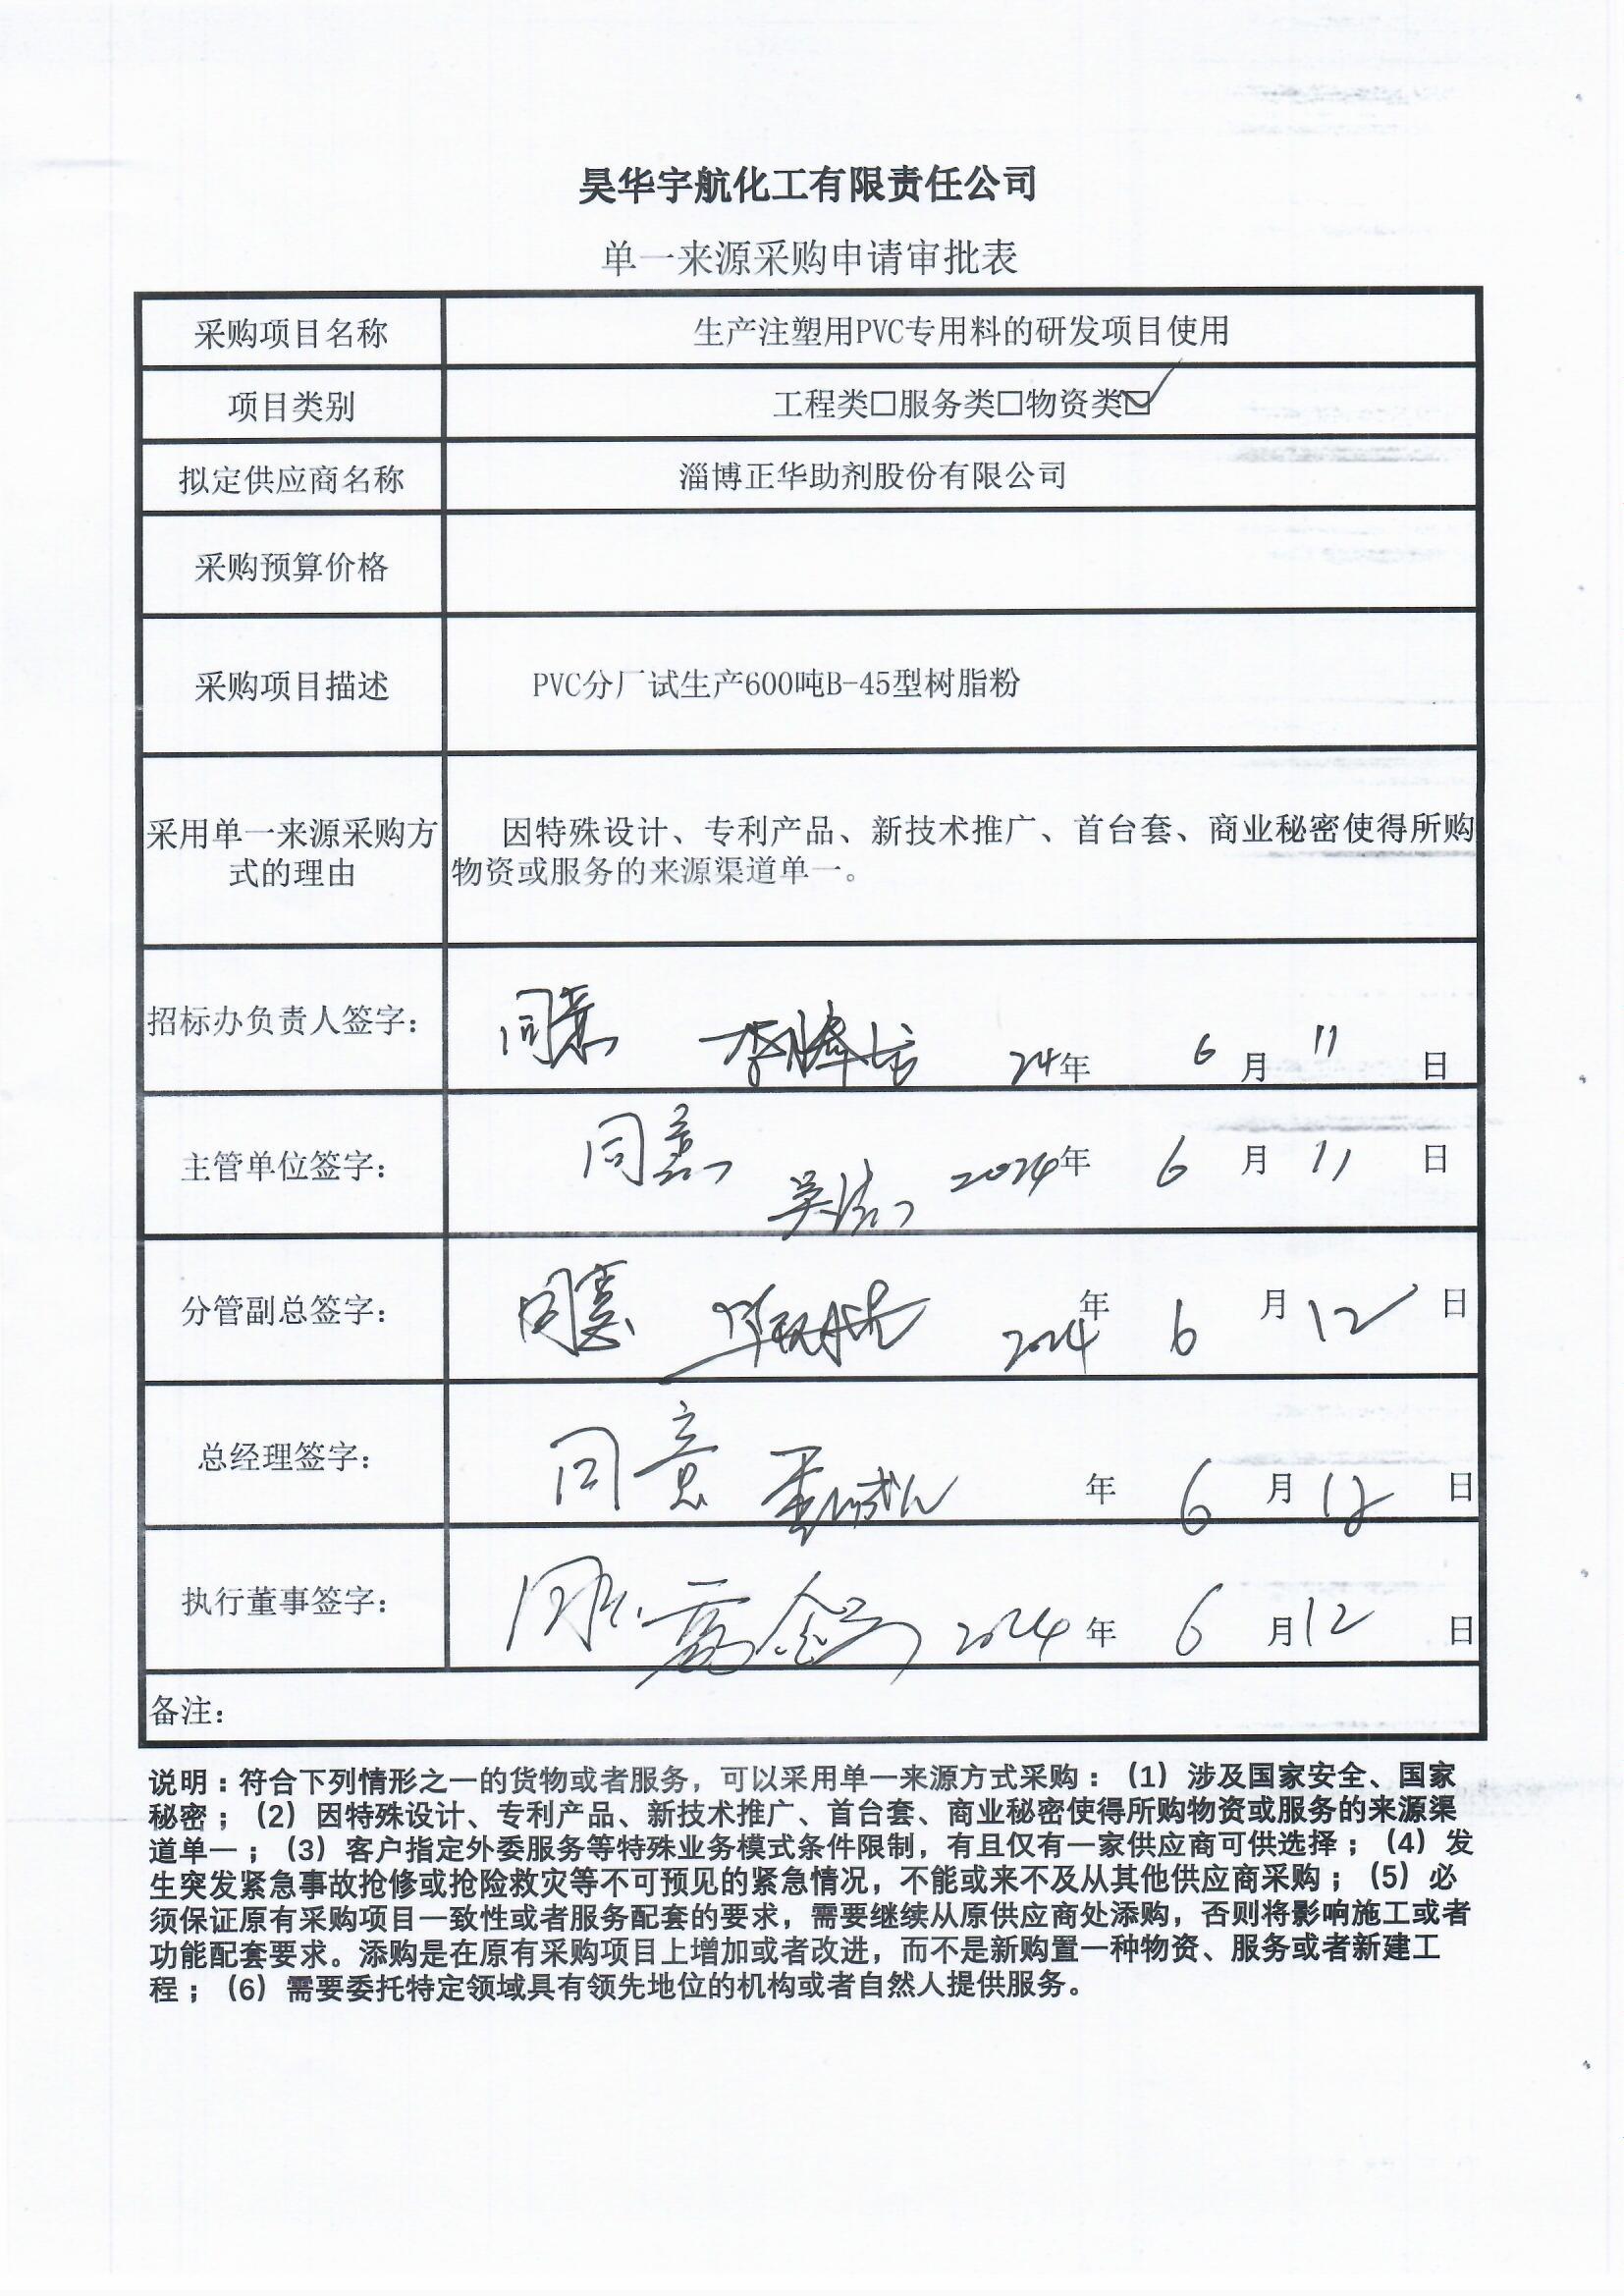 昊华宇航化工有限责任公司
单一来源采购申请审批表
采购项目名称 生产注塑用PVC专用料的研发项目使用
项目类别 工程类□服务类□物资类☑
拟定供应商名称 淄博正华助剂股份有限公司
采购预算价格
采购项目描述 PVC分厂试生产600吨B-45型树脂粉
采用单一来源采购方 因特殊设计、专利产品、新技术推广、首台套、商业秘密使得所购
式的理由 物资或服务的来源渠道单一。
招标办负责人签字: 同意 24年 6月 11日
主管单位签字: 同意 2024年 6月 11日
分管副总签字: 同意 2024年 6月 12日
总经理签字: 同意 年 6月 12日
执行董事签字: 同意 2024年 6月 12日
备注:
说明:符合下列情形之一的货物或者服务，可以采用单一来源方式采购:（1）涉及国家安全、国家
秘密;（2）因特殊设计、专利产品、新技术推广、首台套、商业秘密使得所购物资或服务的来源渠
道单一;（3）客户指定外委服务等特殊业务模式条件限制，有且仅有一家供应商可供选择;（4）发
生突发紧急事故抢修或抢险救灾等不可预见的紧急情况，不能或来不及从其他供应商采购;（5）必
须保证原有采购项目一致性或者服务配套的要求，需要继续从原供应商处添购，否则将影响施工或者
功能配套要求。添购是在原有采购项目上增加或者改进，而不是新购置一种物资、服务或者新建工
程;（6）需要委托特定领域具有领先地位的机构或者自然人提供服务。